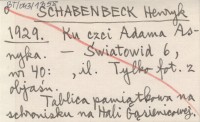 SCHABENBECK Henryk
1929. Ku czci Adama As-
nyka. — Światowid 6,
nr 40: , il. Tylko fot. z
objaśn.
Tablica pamiątkowa na
schronisku na Hali Gąsienicowej.